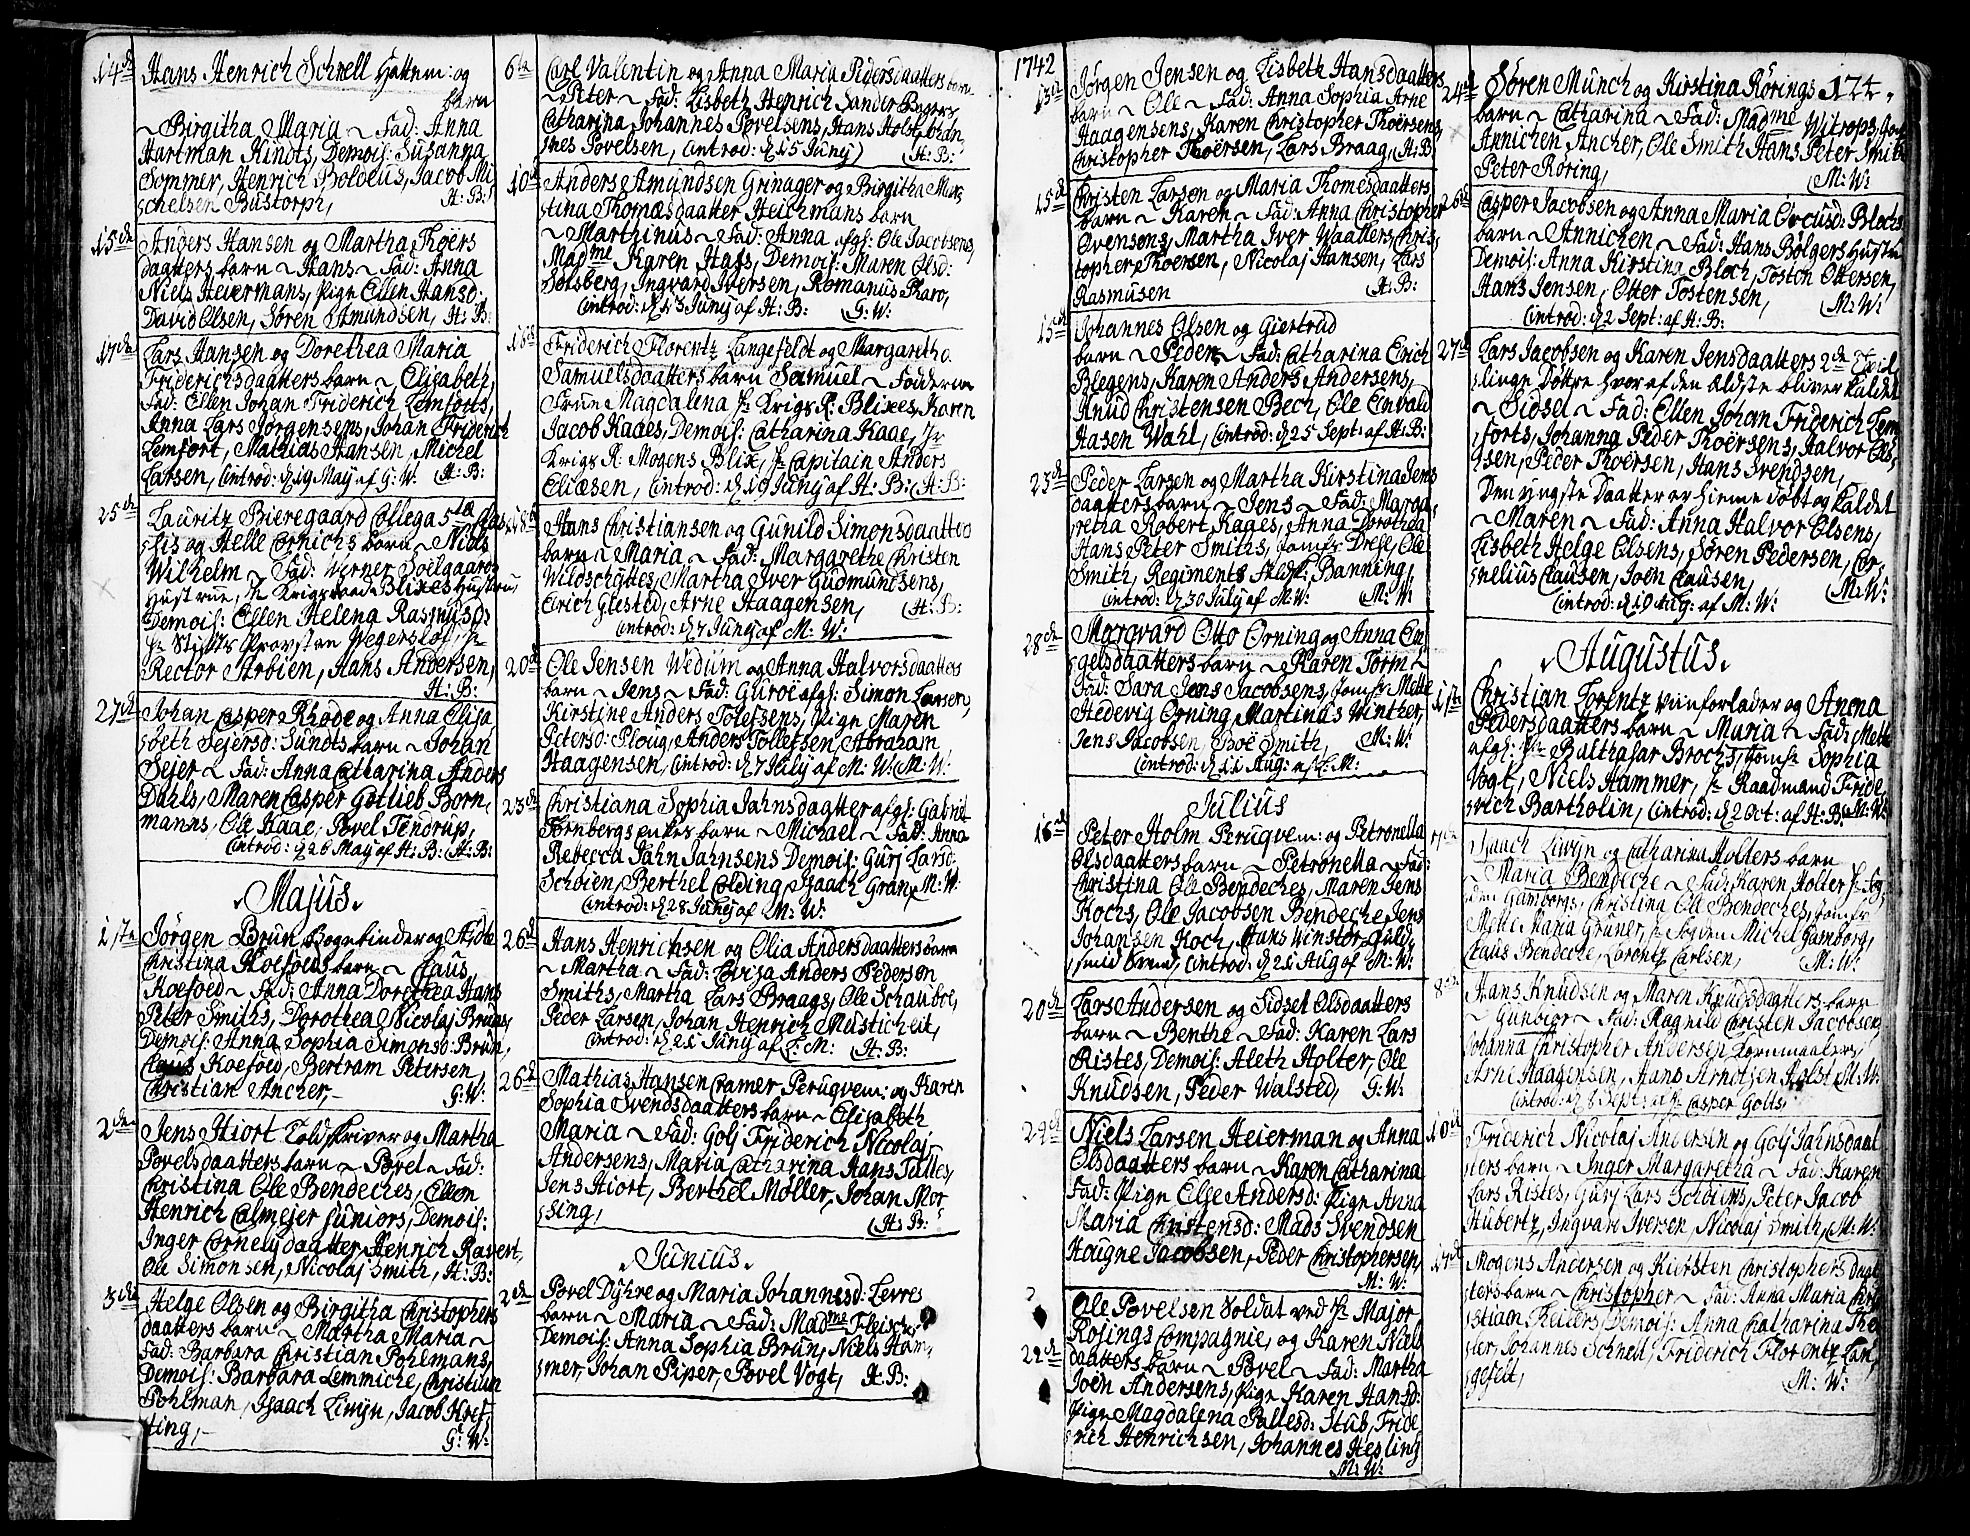 14de Hans Henrich Schnell Hattem: og
barn
~ Birgitha Maria ~ Fad: Anna
Hartman Kindts, Demois: Susanna
Sommer, Henrich Boldeus, Jacob Mi
chelsen Bustorph, H: B:
15de Anders Hansen og Martha Thoers
daatters barn ~ Hans ~ Fad: Anna
Niels Heiermans, Pige Ellen Hansd.
David Olsen, Søren Amundsen, H: B:
17de Lars Hansen og Dorethea Maria
Friderichsdaatters barn ~ Elisabeth,
Fad: Ellen Johan Friderich Lemforts,
Anna Lars Jørgensens, Johan Friderich
Lemfort, Mathias Hansen, Michel
Larsen, Introd: d 19 May af G: W. H: B:
25de Lauritz Bieregaard Collega 5tæ Clas,
sis og Helle Cornichs barn ~ Niels
Wilhelm ~ Fad: Verner Soelgaards
Hustrue, Hr Krigsraad Blixes Hustru,
Demois: Ellen Helena Rasmus
Hr Stifts Provsten Wegersløf, Hr
Rector Arbien, Hans Andersen,
H: B:
27de Johan Casper Rhode og Anna Elisa
beth Sejersd: Sundts barn ~ Johan
Sejer ~ Fad: Anna Catharina Anders
Dahls, Maren Casper Gotlieb Born-
manns, Ole Kaae, Povel Tendrup,
Introd: d 26 May af H: B: H: B:
Majus.
1ste Jørgen Brun Bogebinder og
Christina Koefoeds barn ~ Claus
Koefoed ~ Fad: Anna Dorothea Hans
Peter Smiths, Dorothea Nicolaj Bruns,
Demois: Anna Sophia Simonsd: Brun,
Claus Koefoed, Bertram Petersen,
Christian Ancher, ~ G: W:
2den Jens Hiort Toldskriver og Martha
Povelsdaatters barn ~ Povel ~ Fad:
Christina Ole Bendeches, Ellen
Henrich Calmejer Juniors, Demois:
Inger Cornelysdaatter, Henrich Ravert,
Ole Simonsen, Nicolaj Smith, H: B:
3die Helge Olsen og Birgitha Christophers
daatters barn ~ Martha Maria ~
Fad: Barbara Christian Pohlmans,
Demois: Barbara Lemmiche, Christian
Pohlman, Isaach Liwyn, Jacob Kief,
ting, ~ G: W:
6te Carl Valentin og Anna Maria Pedersdaatters barn
~ Peter ~ Fad: Lisbeth Henrich Sander
Catharina Johannes Povelsens, Hans Holst, Johan
nes Povelsen, (introd: d 15 Junij) H: B:
10de Anders Amundsen Grinager og Birgitha Mar
tina Thomædaatter Heichmans barn
~ Marthinus ~ Fad: Anna afgs: Ole Jacobsens,
Madme Karen Hafs, Demois: Maren Olsd:
Solsberg, Ingvard Iversen, Romanus Pharo,
Introd: d 13 Junij af H: B: G: W:
16de Friderich Florentz Langefeldt og Margaretha
Samuelsdaatters barn Samuel ~ Fadderne
Frue Magdalena Hr Krigs R: Blixes, Karen
Jacob Kaaes, Demois: Catharina Kaae, Hr
Krigs R: Mogens Blix, Hr Capitain Anders
Eliæsen, Introd: d 19 Junij af H: B: H: B:
18de Hans Christiansen og Gunild Simonsdaatters
barn ~ Maria ~ Fad: Margarethe Christen
Wildschöttes, Martha Iver Gudmundsens,
Erich Glested, Arne Haagensen, H: B:
Introd: d 7 Junij af M: W:
20de Ole Jensen Wedum og Anna Halvorsdaatters
barn ~ Jens ~ Fad: Guroe afgs: Simon Larsen,
Kirstine Anders Tolefsens, Pige Maren
Petersd: Ploug, Anders Tollefsen, Abraham
Haagensen, Introd: d 7 July af M: W: M: W:
23de Christiana Sophia Jahnsdaatter afgs: Gabriel
Tornbergs enkes barn ~ Michael ~ Fad: Anna
Rebecca Jahn Jahnsens Demois: Gurj Larsd:
Schøien, Berthel Colding, Isaach Gran, M: W:
Introd: d 28 Junij af M: W:
26de Hans Henrichsen og Olia Andersdaatters barn
~ Martha ~ Fad: Lovisa Anders Pedersen
Smiths, Martha Lars Braags, Ole Schauboe,
Peder Larsen, Johan Henrich Musticheit,
Introd: d 21 Junij af F: M: H: B:
26de Mathias Hansen Cramer Peruqvem: og Karen
Sophia Svendsdaatters barn ~ Elisabeth
Maria ~ Fad: Golj Friderich Nicolaj
Andersens, Maria Catharina Hans Talles,
Jens Hiort, Berthel Møller, Johan Mor
sing, H: B:
Junius.
2den Povel Dyhre og Maria Johannesd: Levres
barn ~ Maria ~ Fad: Madme Fleischer
Demois: Anna Sophia Brun, Niels Ham,
mer, Johan Piper, Povel Vogt, H: B:
1742
13de Jørgen Jensen og Lisbeth Hansdaatters
barn ~ Ole ~ Fad: Anna Sophia Arne
Haagensens, Karen Christopher Thoersens,
Christopher Thoersen, Lars Braag, H: B:
15de Christen Larsen og Maria Thomesdaatters
barn ~ Karen ~ Fad: Anna Christopher
Ovensens, Martha Iver Waatters, Chris,
topher Thoersen, Nicolaj Hansen, Lars
Rasmusen H: B:
15de Johannes Olsen og Giertrud
barn ~ Peder ~ Fad: Catharina Erich
Blegens, Karen Anders Andersens,
Knud Christensen Bech, Ole Enwald
Hasen Wahl, Introd: d 25 Sept: af H: B:
23de Peder Larsen og Martha Kirstina Jens
daatters barn ~ Jens ~ Fad: Marga,
retha Robert Kages, Anna Dorothea
Hans Peter Smiths, Jomfr Drese, Ole
Smith, Regiments Feldsk: Banning,
Introd: d 30 July af M: W: M: W:
28de Marqvard Otto Orning og Anna En
gelsdaatters barn ~ Karen Torm ~
Fad: Sara Jens Jacobsens, Jomfr Mette
Hedevig Orning, Martinus Winther,
Jens Jacobsen, Boë Smith, M: W:
Introd: d 11 Aug: af F: M:
Julius
16de Peter Holm Peruqvem: og Petronella
Olsdaatters barn ~ Petronella ~ Fad:
Christina Ole Bendeches, Maren Jens
Kochs, Ole Jacobsen Bendeche, Jens
Johansen Koch, Hans Winstor Guld,
smid Svend, Introd: d 21 Aug af M: W:
20de Lars Andersen og Sidsel Olsdaatters
barn ~ Benthe ~ Fad: Karen Lars
Ristes, Demois: Aleth Holter, Ole
Knudsen, Peder Walsted, G: W:
24de Niels Larsen Heierman og Anna
Olsdaatters barn ~ Karen Catharina
Fad: Pige Else Andersd: Pige Anna
Maria Christensd: Mads Svendsen
Hougne Jacobsen, Peder Christophersen,
M: W:
22de Ole Povelsen Soldat ved Hr Major
Rosings Compagnie, og Karen Niels
daatters barn ~ Povel ~ Fad: Martha
Joen Andersens, Pige Karen Hansd:
Pige Magdalena Pallesd: Stub, Fride
rich Henrichsen, Johannes Hesling
M: W:
24de Søren Munch og Kirstina Rörings 174.
barn ~ Catharina ~ Fad: Madme Witrops,
Annichen Ancher, Ole Smith Hans Peter Smith
Peter Röring, M: W:
26de Casper Jacobsen og Anna Maria Orcusd: Blochs
barn ~ Annichen ~ Fad: Hans Bölgers Hustru
Demois: Anna Kirstina Bloch, Tosten Ottersen,
Hans Jensen, Otter Tostensen, M: W:
Introd: d 2 Sept: af H: B:
27de Lars Jacobsen og Karen Jensdaatters 2de Tvil
linge Døttre hvor af den Ældste bliver kaldet
~ Sidsel ~ Fad: Ellen Johan Friderich Lem
forts, Johanna Peder Thoersens, Halvor Ols,
sen, Peder Thoersen, Hans Svendsen,
Den yngste Daatter er hieme døbt og kaldet
~ Maren ~ Fad: Anna Halvor Olsens,
Lisbeth Helge Olsens, Søren Pedersen, Cor,
nelius Clausen, Joen Clausen, M: W:
Introd: d 19 Aug: af M: W:
Augustus.
1ste Christian Lorentz Viinforlader og Anna
Pedersdaatters barn ~ Maria ~ Fad: Mette
afgs: Hr Balthasar Brochs, Jomfr Sophia
Vogt, Niels Hammer, Hr Raadmand Fride,
rich Bartholin, Introd: d 2 Oct: af H: B: M: W:
7de Isaach Liwyn og Catharina Holters barn
~ Maria Bendeche ~ Fad: Karen Holter
Gamborgs, Christina Ole Bendeches, Jomfr
Mette Maria Grüner, Michel Gamborg,
Claus Bendeche, Lorentz Carlsen, M: W:
8de Hans Knudsen og Maren Knudsdaatters barn
~ Gunbior ~ Fad: Ragnild Christen Jacobsens
Johanna Christopher Andersen Kornmaalers,
Arne Haagensen, Hans Arnotsen Holst M: W:
Introd: d 8 Sept: af Hr Casper Golts
10de Friderich Nicolaj Andersen og Golj Jahnsdaat
ters barn ~ Inger Margaretha ~ Fad: Karen
Lars Ristes, Gurj Lars Schøiens, Peter Jacob
Hubertz, Ingvar Iversen, Nicolaj Smith, M: W:
17de Mogens Andersen og Kiersten Christophers daat
ters barn ~ Christopher ~ Fad: Anna Maria Chri
stian Theilers, Demois: Anna Catharina The
ler, Johannes Schnell, Friderich Florentz Lan,
gefelt, M: W: